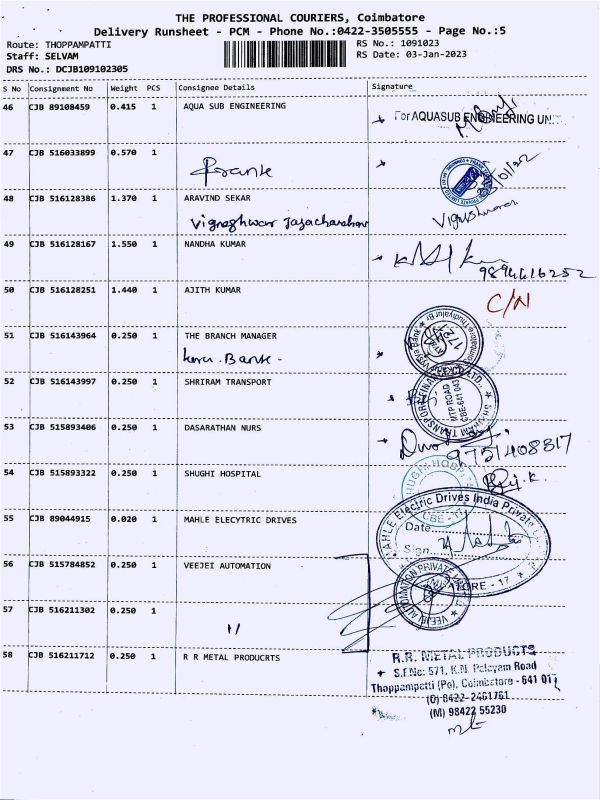 THE PROFESSIONAL COURIERS, Coimbatore
Delivery Runsheet - PCM - Phone No.:0422-3505555 - Page No.:5
Route: THOPPAMPATTI
RS No.: 1091023
Staff: SELVAM
RS Date: 03-Jan-2023
DRS No.: DCJB109102305
S No Consignment No Weight PCS Consignee Details Signature
46 CJB 89108459 0.415 1 AQUA SUB ENGINEERING
For AQUASUB ENGINEERING UNIT
47 CJB 516033899 0.570 1
48 CJB 516128386 1.370 1 ARAVIND SEKAR
49 CJB 516128167 1.550 1 NANDHA KUMAR
9894616252
50 CJB 516128251 1.440 1 AJITH KUMAR
C/N
51 CJB 516143964 0.250 1 THE BRANCH MANAGER
Bank -
52 CJB 516143997 0.250 1 SHRIRAM TRANSPORT
MTP ROAD
CBE-641 043
53 CJB 515893406 0.250 1 DASARATHAN NURS
9751408317
54 CJB 515893322 0.250 1 SHUGHI HOSPITAL
55 CJB 89044915 0.020 1 MAHLE ELECYTRIC DRIVES
AHLE Electric Drives India Private
Date
Sign
56 CJB 515784852 0.250 1 VEEJEI AUTOMATION
VEEJEI AUTOMATION PRIVATE
57 CJB 516211302 0.250 1
58 CJB 516211712 0.250 1 R R METAL PRODUCRTS
R.R. METAL PRODUCTS
S.F.No: 571, K.N. Palayam Road
Thoppampatti (Po), Coimbatore - 641 017
(O) 0422-2461761
(M) 98422 55230